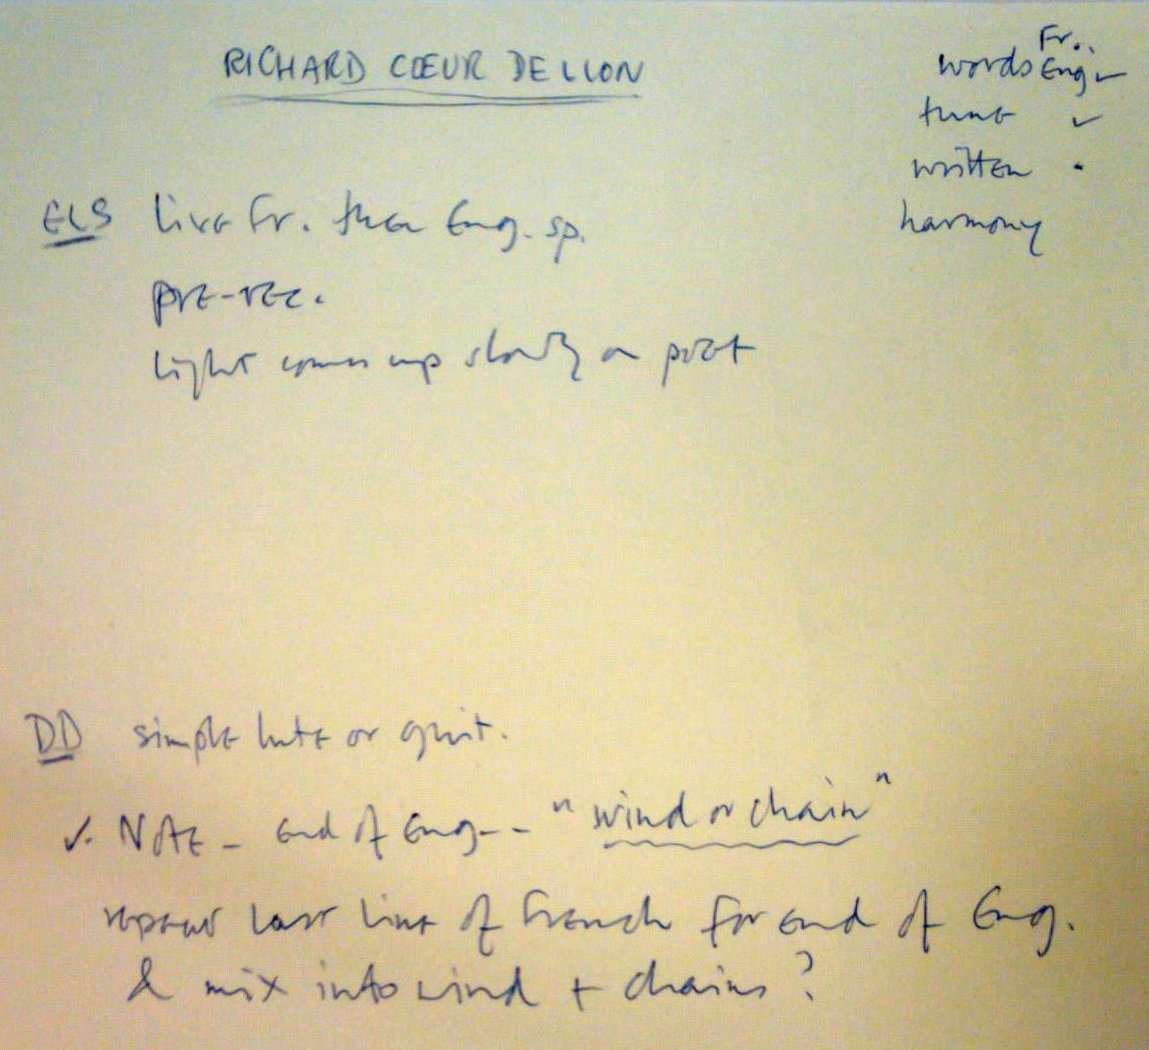 RICHARD CŒUR DE LION
Fr.
words Eng ✓
tune ✓
written •
harmony
ELS live Fr. then Eng. sp.
pre-rec.
light comes up slowly on poet
DD simple lute or guit.
✓. NOTE - end of Eng - - "wind or chain"
repeat last line of French for end of Eng.
& mix into wind + chains?